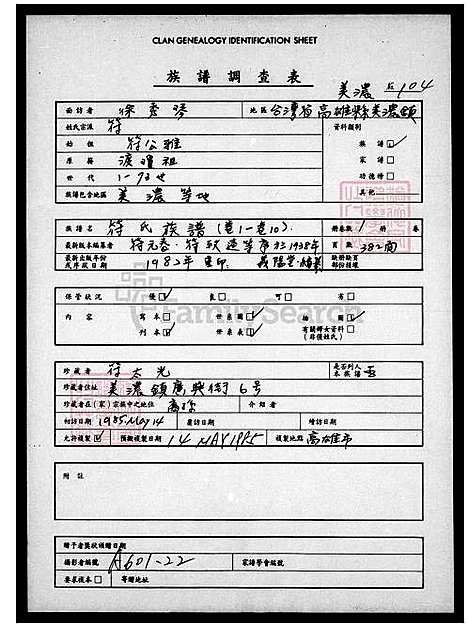 CLAN GENEALOGY IDENTIFICATION SHEET
族 譜 調 查 表
美濃 104
面訪者 徐秀琴 地區 台灣省高雄縣美濃鎮
姓氏宗派 符 資料類別
始祖 符公雅 族譜 ☑
原籍 渡瓊祖 家譜 □
世代 功德榜 □
族譜包含地區 美濃 等地 其他
族譜名 符氏族譜(卷一~卷10) 冊卷數 1 冊 卷
最新版本編纂者 於1938年 頁數 382面
最新出版年份或序跋日期 1982年 重印 義陽堂 缺冊缺頁部份補綴
保管狀況 優 ☑ 良 □ 可 □ 劣 □
內容 寫本 □ 世系圖 ☑ 插圖 ☑
刊本 ☑ 世系表 ☑ 有關婦女資料(非僅姓氏) □
珍藏者 符太光 是否列入本族譜 否
珍藏者住址 美濃鎮廣興街6号
珍藏者在(家)宗族中之地位 裔孫 介紹者
初訪日期 1985 May 14 覆訪日期 增訪日期
允許複製 ☑ 預擬複製日期 14 MAY 1985 複製地點 高雄市
附註
贈予者獎狀頒贈日期
攝影者編號 A601-22 家譜學會編號
要求複本 □ 寄贈地址
FamilySearch